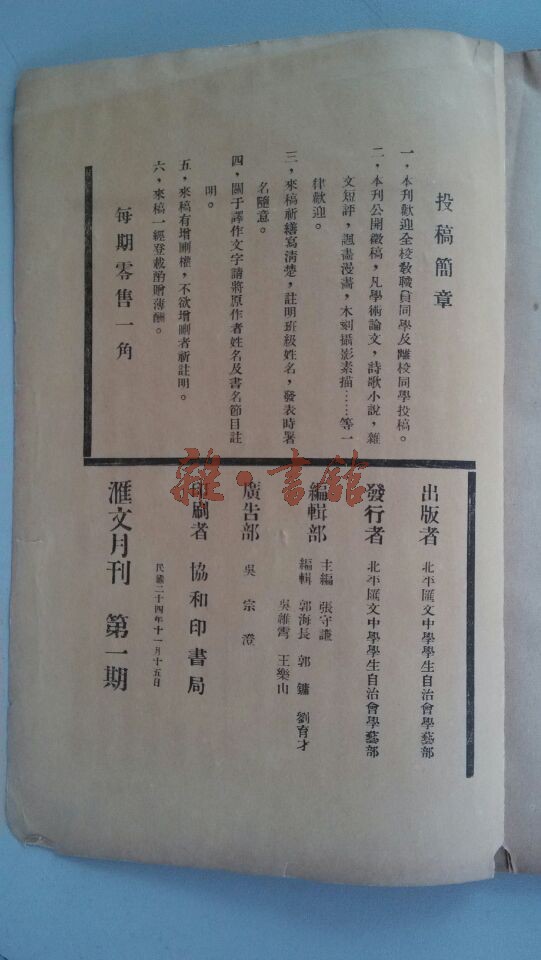 投稿簡章
一，本刊歡迎全校敎職員同學及離校同學投稿。
二，本刊公開徵稿，凡學術論文，詩歌小說，雜
文短評，諷畵漫畵，木刻攝影素描……等一
律歡迎。
三，來稿祈繕寫清楚，註明班級姓名，發表時署
名隨意。
四，關于譯作文字請將原作者姓名及書名節目註
明。
五，來稿有增刪權，不欲增刪者祈註明。
六，來稿一經登載酌贈薄酬。
每期零售一角
出版者 北平匯文中學學生自治會學藝部
發行者 北平匯文中學學生自治會學藝部
編輯部 主編 張守謙
編輯 郭海長 郭鏞 劉育才
吳維霄 王樂山
廣告部 吳宗澄
印刷者 協和印書局
民國二十四年十一月十五日
滙文月刊 第一期
雜·書館